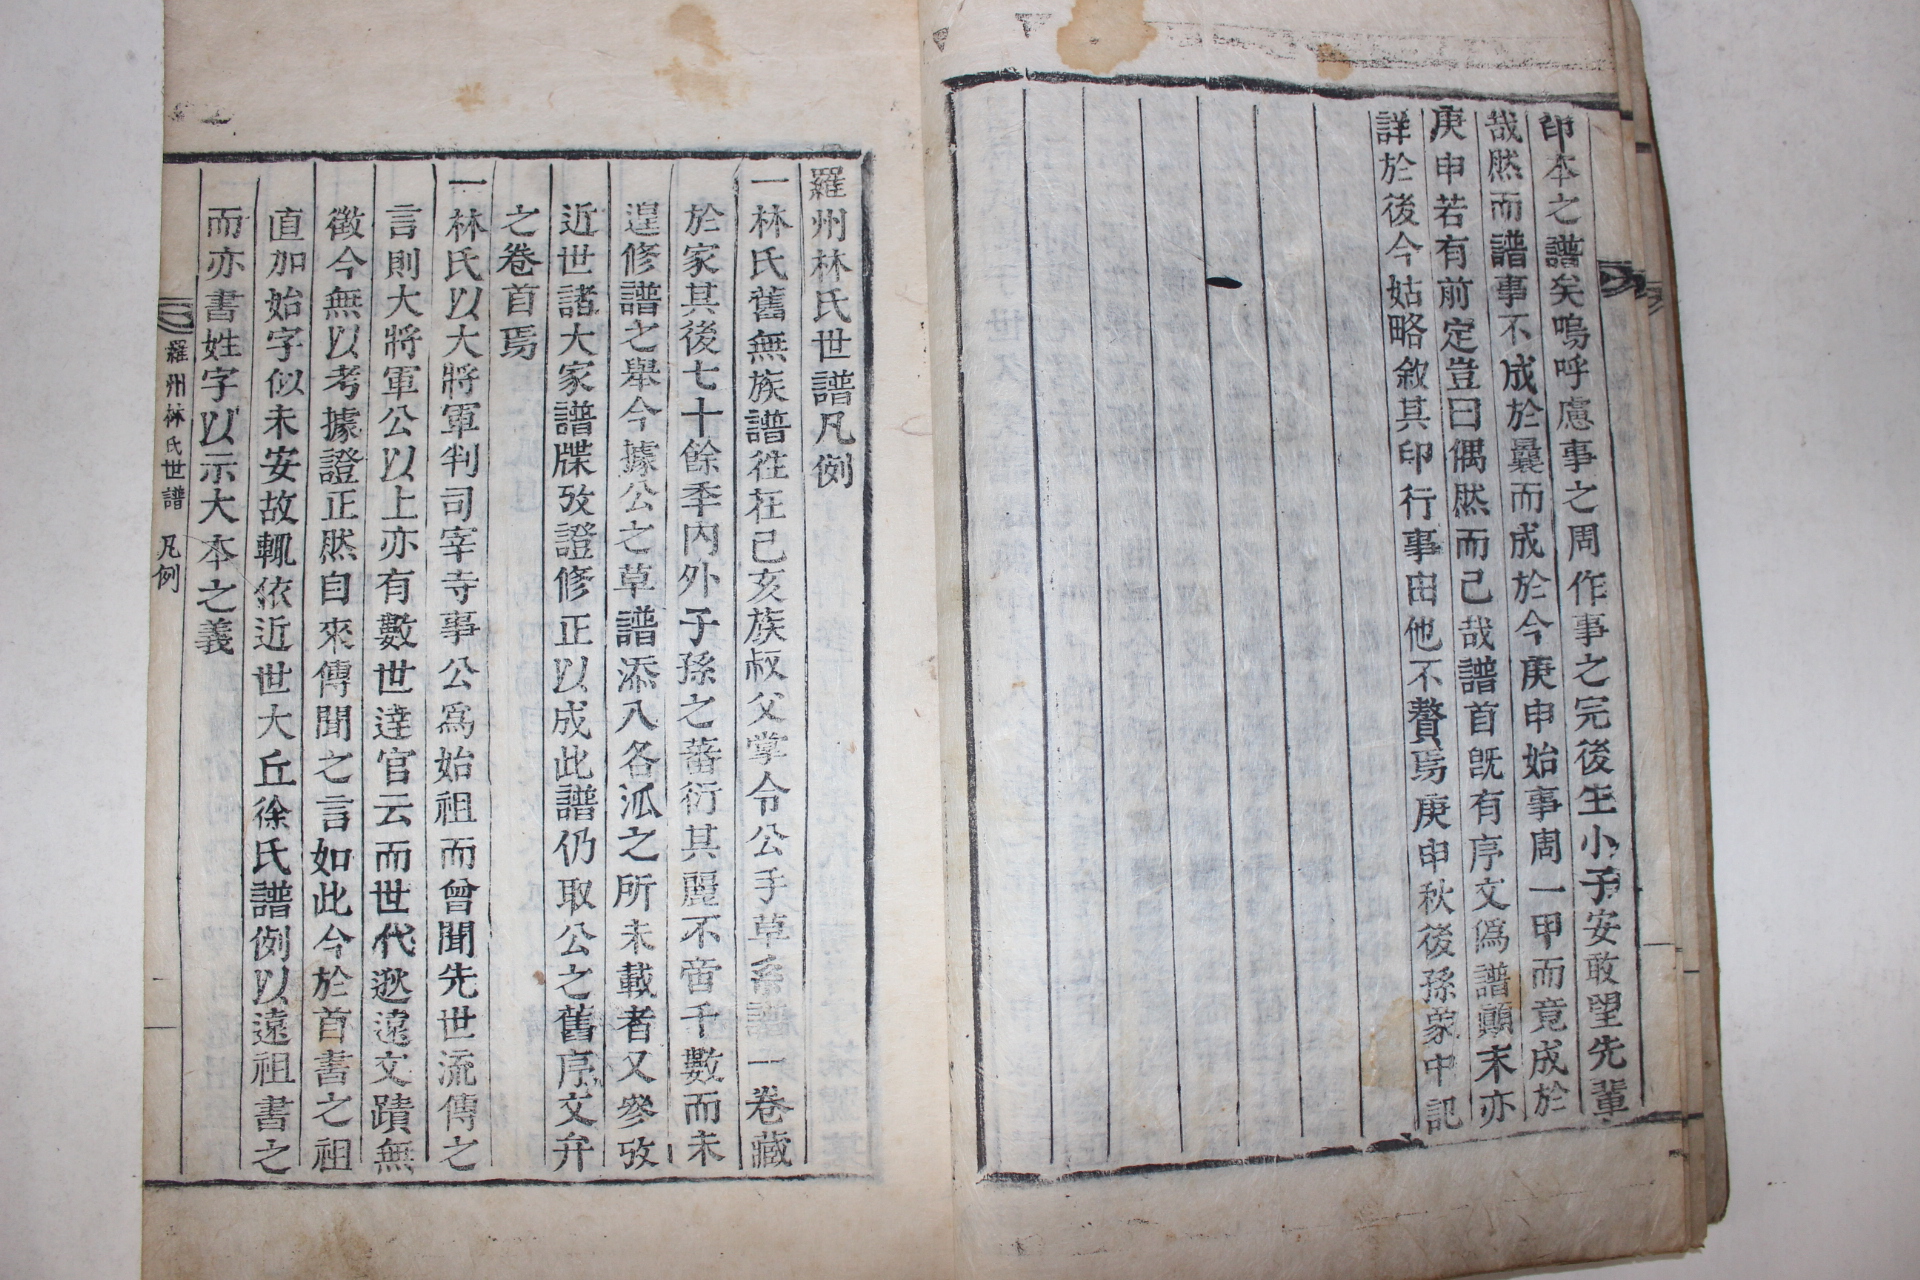 印本之譜矣嗚呼慮事之周作事之完後生小子安敢望先輩
哉然而譜事不成於曩而成於今庚申始事周一甲而竟成於
庚申若有前定豈曰偶然而已哉譜首旣有序文爲譜顚末亦
詳於後今姑略敘其印行事由他不贅焉庚申秋後孫象中記
羅州林氏世譜凡例
一林氏舊無族譜徃在己亥族叔父掌令公手草系譜一卷藏
於家其後七十餘季內外子孫之蕃衍其麗不啻千數而未
遑修譜之舉今據公之草譜添入各派之所未載者又參攷
近世諸大家譜牒攷證修正以成此譜仍取公之舊序文弁
之卷首焉
一林氏以大將軍判司宰寺事公爲始祖而曾聞先世流傳之
言則大將軍公以上亦有數世達官云而世代逖遠文蹟無
徵今無以考據證正然自來傳聞之言如此今於首書之祖
直加始字似未安故輒依近世大丘徐氏譜例以遠祖書之
而亦書姓字以示大本之義
羅州林氏世譜 凡例